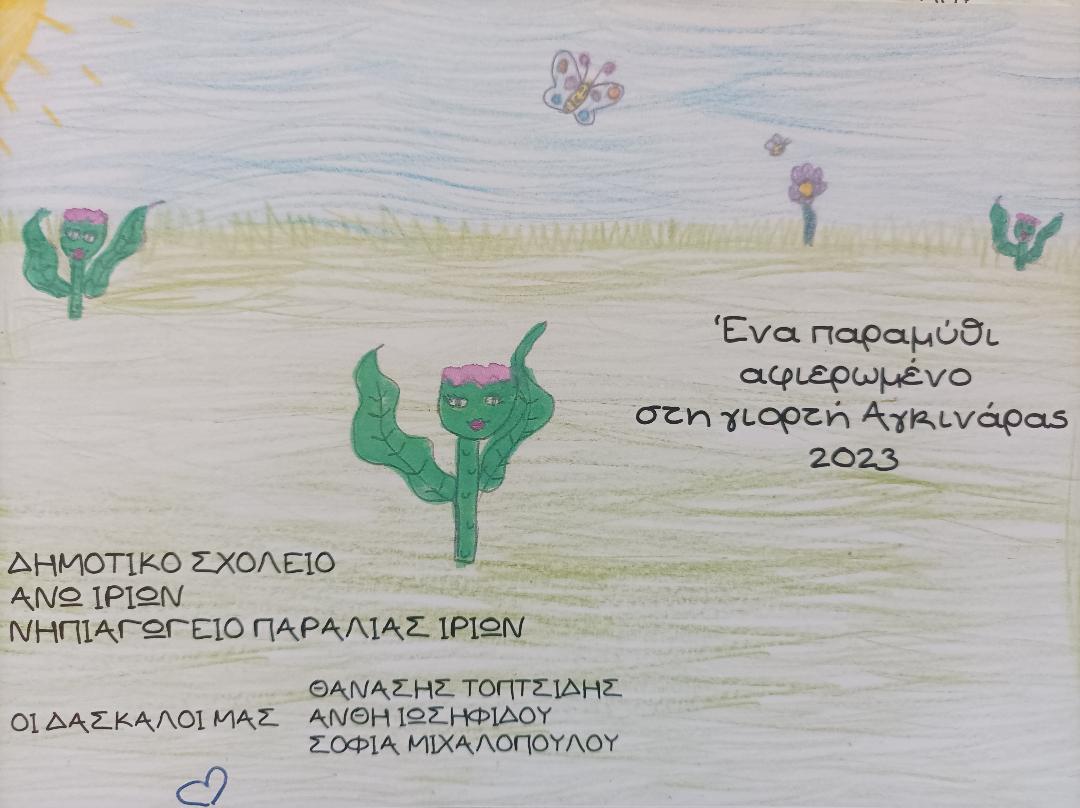 Ένα παραμύθι
αφιερωμένο
στη γιορτή Αγκινάρας
2023
ΔΗΜΟΤΙΚΟ ΣΧΟΛΕΙΟ
ΑΝΩ ΙΡΙΩΝ
ΝΗΠΙΑΓΩΓΕΙΟ ΠΑΡΑΛΙΑΣ ΙΡΙΩΝ
ΘΑΝΑΣΗΣ ΤΟΠΤΣΙΔΗΣ
ΟΙ ΔΑΣΚΑΛΟΙ ΜΑΣ ΑΝΘΗ ΙΩΣΗΦΙΔΟΥ
ΣΟΦΙΑ ΜΙΧΑΛΟΠΟΥΛΟΥ